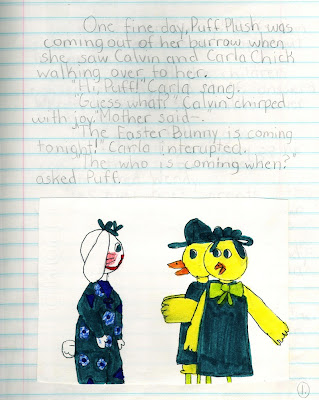 One fine day, Puff Plush was
coming out of her burrow when
she saw Calvin and Carla Chick
walking over to her.
"Hi, Puff!" Carla sang.
"Guess what?" Calvin chirped
with joy. "Mother said-.
"The Easter Bunny is coming
tonight!" Carla interupted.
"The who is coming when?"
asked Puff.
1.